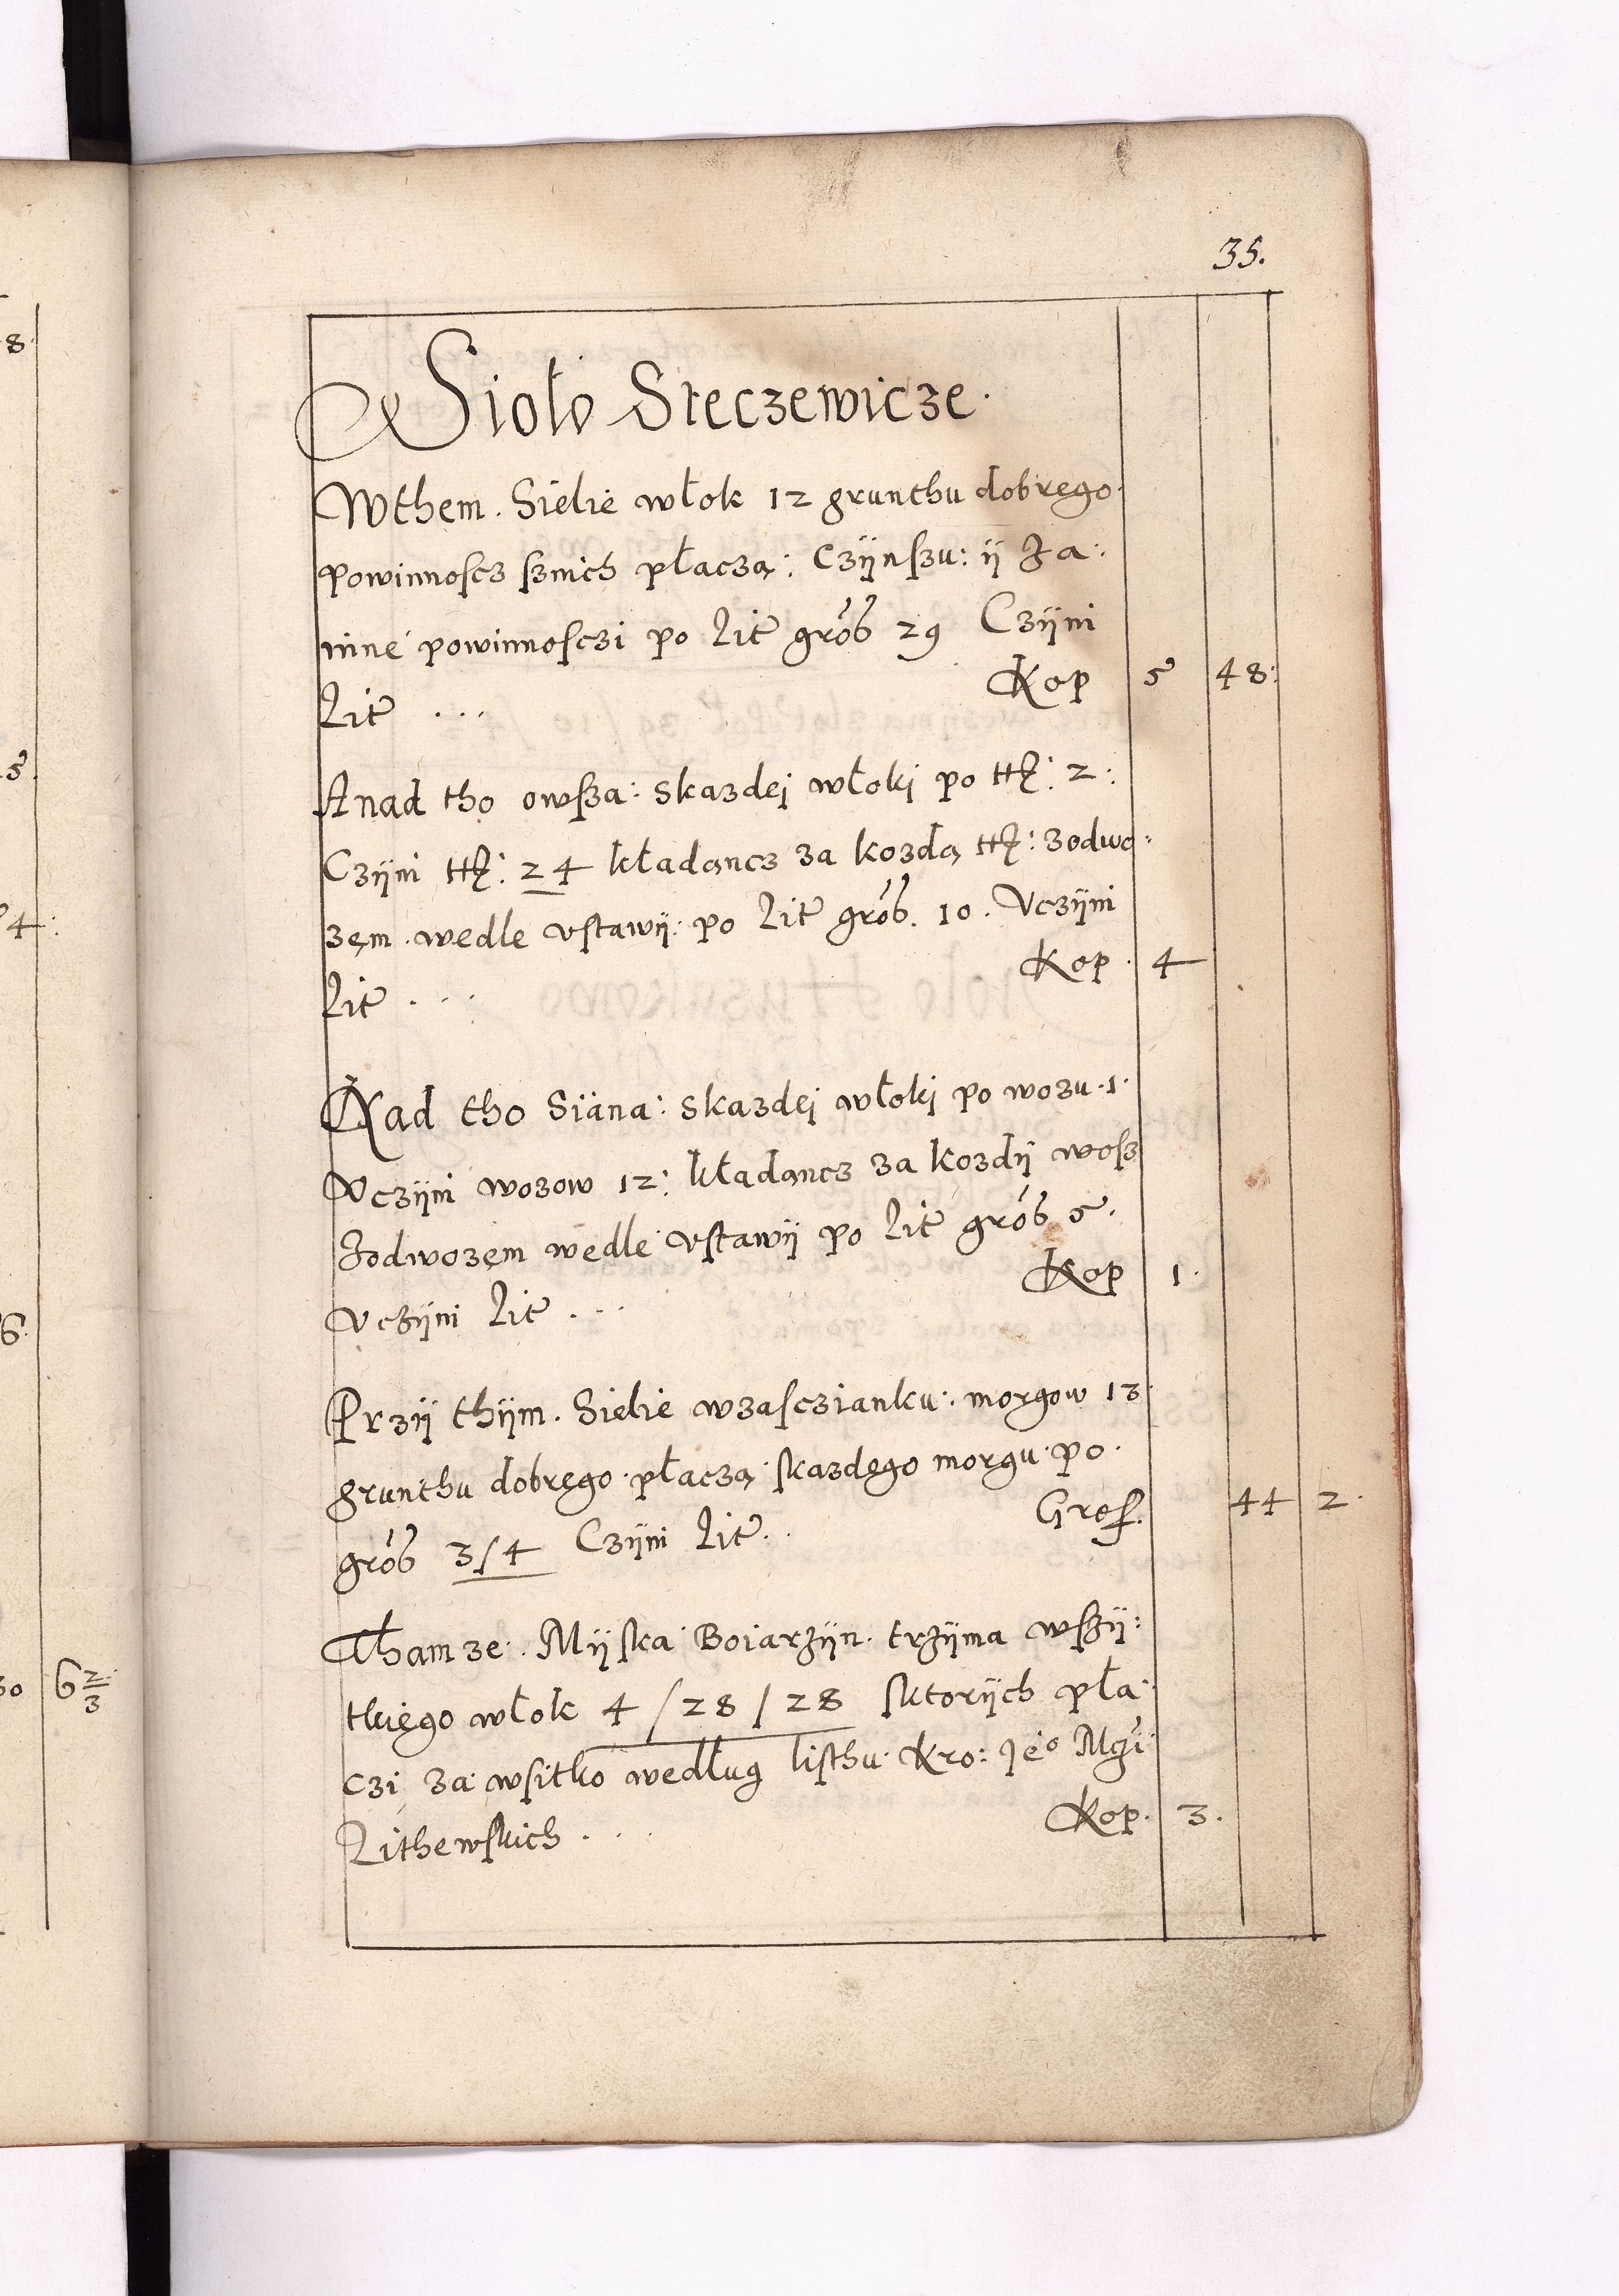 35.
Sioło Steczewicze.
Wthem. Sielie włok 12 grunthu dobrego.
powinnoscz sznich płaczą: Czijnszu: ij Za:
inne powinnosczi po Lit grosz 29 Czijni
Lit . . . Kop 5 48:
Anad tho owsza: skazdej włoki po tt: 2:
Czijni tt: 24 kładancz za kozdą tt: zodwo:
zem. wedle vstawij: po Lit grosz. 10. Vczijni
Lit . . . Kop. 4
Nad tho Siana: skazdej włoki po wozu. 1.
Vczijni wozow 12: kładancz za kozdij wosz
Zodwozem wedle vstawij po Lit grosz 5.
Vczijni Lit . . . Kop 1.
Przij thijm. Sielie wzasczianku: morgow 13
grunthu dobrego. płaczą skazdego morgu. po.
grosz 3/4 Czijni Lit. . Gros. 44 2.
Thamze. Mijska Boiarzijn. trzijma wszij:
tkiego włok 4 / 28 / 28 sktorijch pła:
czi za wsitko według listhu Kro: Jeo Mczi
Lithewskich . . . Kop. 3.
8.
5.
4:
6.
30 6 2/3